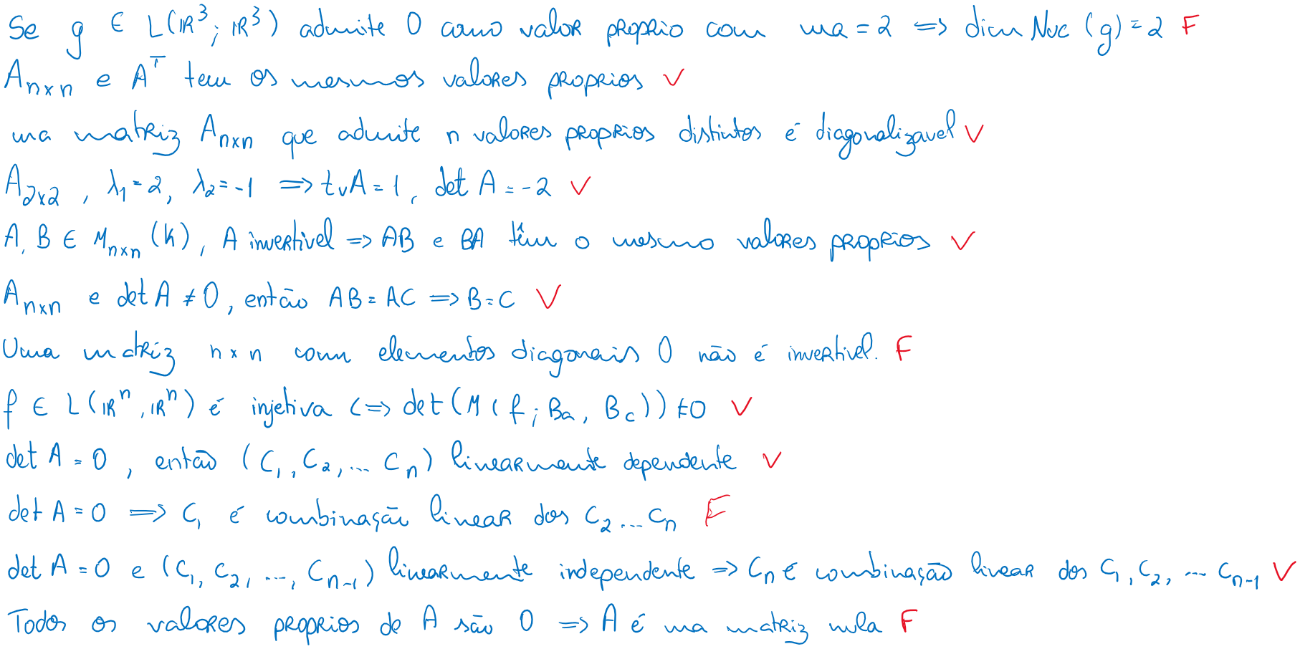 Se g ∈ L(IR³; IR³) admite 0 como valor proprio com ma = 2 => dim Nuc (g) = 2 F
Aₙₓₙ e Aᵀ tem os mesmos valores proprios V
ma matriz Aₙₓₙ que admite n valores proprios distintos é diagonalizavel V
A₂ₓ₂ , λ₁ = 2, λ₂ = -1 => trA = 1, det A = -2 V
A, B ∈ Mₙₓₙ (K), A invertivel => AB e BA têm o mesmo valores proprios V
Aₙₓₙ e det A ≠ 0, então AB = AC => B = C V
Uma matriz n x n com elementos diagonais 0 não é invertivel. F
f ∈ L(IRⁿ, IRⁿ) é injetiva <=> det (M(f; Ba, Bc)) ≠ 0 V
det A = 0 , então (C₁, C₂, ... Cₙ) linearmente dependente V
det A = 0 => C₁ é combinação linear dos C₂ ... Cₙ F
det A = 0 e (C₁, C₂, ..., Cₙ₋₁) linearmente independente => Cₙ é combinação linear dos C₁, C₂, ... Cₙ₋₁ V
Todos os valores proprios de A são 0 => A é ma matriz nula F